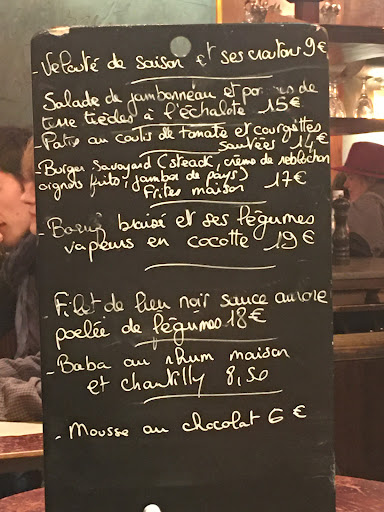 - Velouté de saison et ses croutons 9€
Salade de jambonneau et pommes de
terre tièdes à l'échalote 15€
- Pates au coulis de tomate et courgettes
sautées 14€
- Burger Savoyard (steack, crème de reblochon
oignons frits, jambon de pays)
Frites maison 17€
- Boeuf braisé et ses légumes
vapeurs en cocotte 19€
- Filet de lieu noir sauce aurore
poelée de légumes 18€
- Baba au rhum maison
et chantilly 8,50
- Mousse au chocolat 6 €